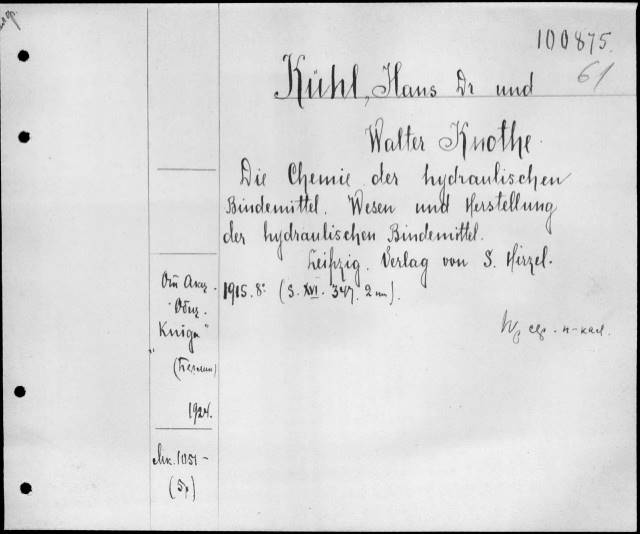 100875.
61
Kühl, Hans Dr und
Walter Knothe.
Die Chemie der hydraulischen
Bindemittel. Wesen und Herstellung
der hydraulischen Bindemittel.
Leipzig. Verlag von S. Hirzel.
1915. 8° (S. XVI. 347. 2 нн).
От Акц.
"Общ.
Книга"
(Берлин)
1924.
(5р)